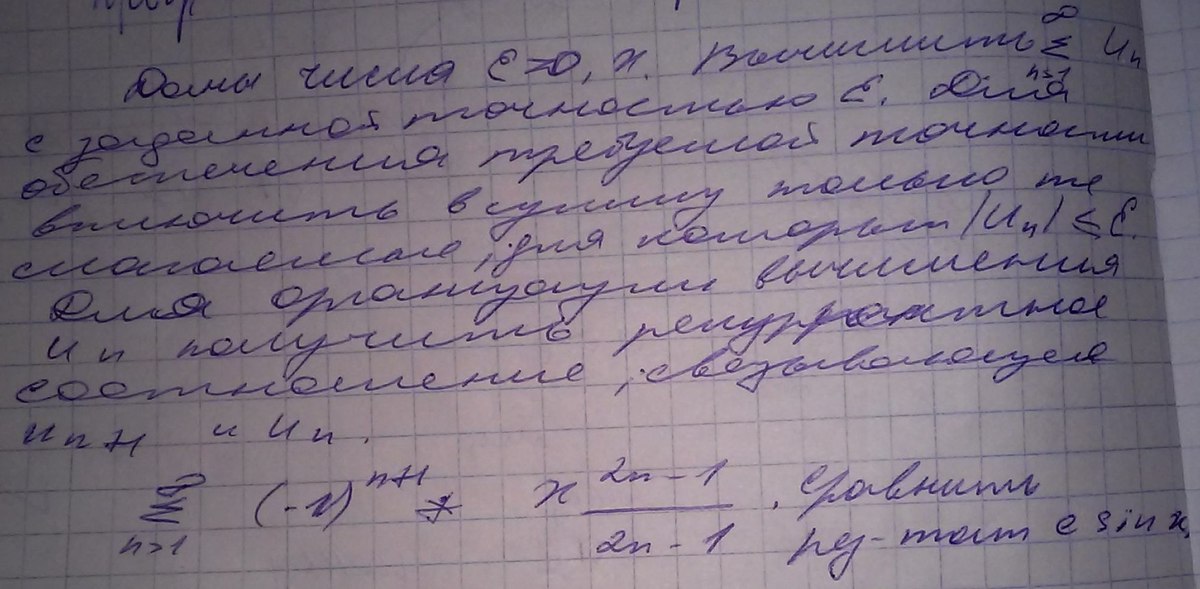 Даны числа ε>0, x. Вычислить ∞ Σ n=1 Un
с заданной точностью ε. Для
обеспечения требуемой точности
включить в сумму только те
слагаемые, для которых |Un| ≤ ε.
Для организации вычисления
Un получить рекуррентное
соотношение, связывающее
un+1 и Un.
∞ Σ n=1 (-1)^n+1 * x^2n-1 / 2n-1 . Сравнить
рез-тат с sin x,